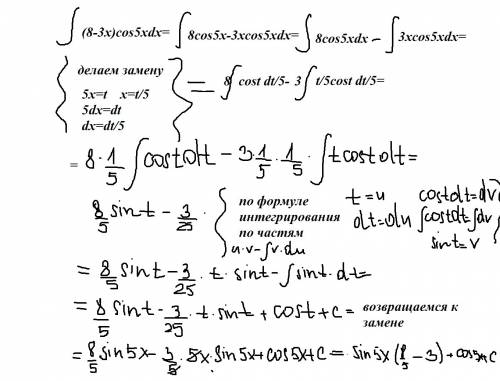 ∫(8-3x)cos5xdx=∫8cos5x-3xcos5xdx=∫8cos5xdx - ∫3xcos5xdx=
делаем замену
5x=t x=t/5
5dx=dt
dx=dt/5
= 8∫cost dt/5- 3∫t/5cost dt/5=
= 8·1/5∫costdt - 3·1/5·1/5·∫tcostdt=
8/5 sint - 3/25·
по формуле
интегрирования
по частям
u·v-∫v·du
t=u costdt=dv
dt=du ∫costdt=∫dv
sint=v
= 8/5 sint - 3/25·t·sint-∫sint·dt=
= 8/5 sint - 3/25·t·sint+cost+c= возвращаемся к
замене
= 8/5 sin5x - 3/5·5x·sin5x+cos5x+c= sin5x(8/5-3)+cos5x+c